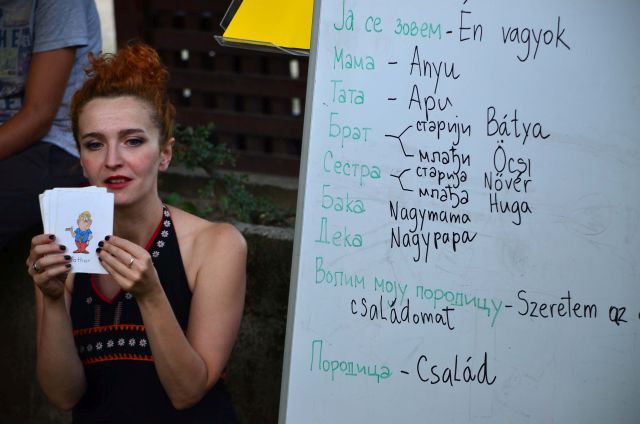 Ја се зовем - Én vagyok
Мама - Anyu
Тата - Apu
Брат старији Bátya
млађи Öcsi
Сестра старија Nővér
млађа Huga
Бака Nagymama
Дека Nagypapa
Волим моју породицу - Szeretem az
családomat
Породица - Család